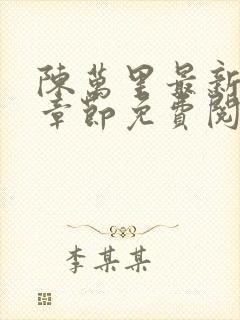 陳萬里最新
章節免費閱
李某某